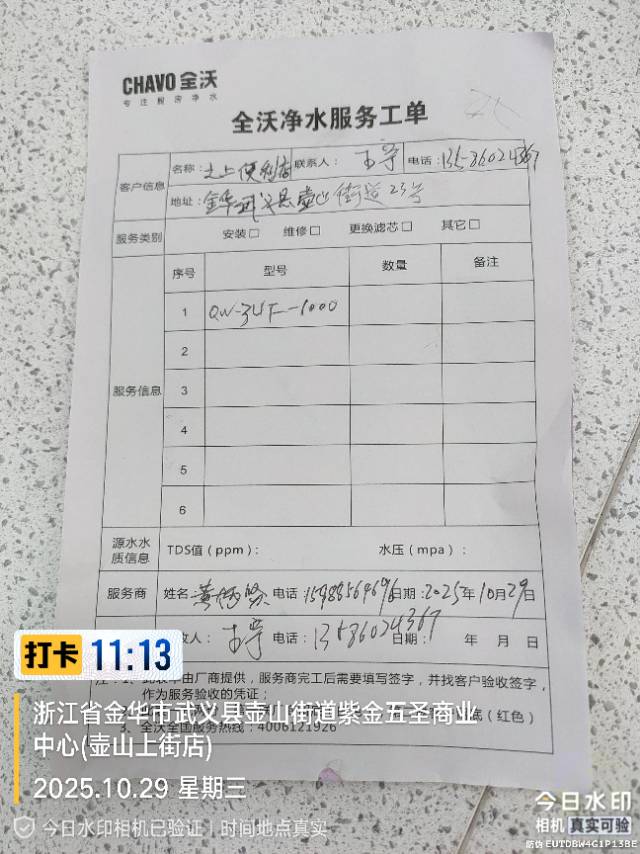 CHAVO 全沃
专注厨房净水
全沃净水服务工单
客户信息 名称: 上 便利店 联系人: 电话: 13586024367
地址: 金华武义县壶山街道23号
服务类别 安装□ 维修□ 更换滤芯□ 其它□
服务信息 序号 型号 数量 备注
1 QW-3UF-1000
2
3
4
5
6
源水水质信息 TDS值(ppm): 水压(mpa):
服务商 姓名 黄 电话: 日期: 2025年10月29日
收人: 电话: 13586024367 日期: 年 月 日
由厂商提供,服务商完工后需要填写签字,并找客户验收签字,
作为服务验收的凭证;
底(红色)
3、全沃全国服务热线:4006121926
打卡 11:13
浙江省金华市武义县壶山街道紫金五圣商业
中心(壶山上街店)
2025.10.29 星期三
今日水印相机已验证 | 时间地点真实
今日水印
相机 真实可验
防伪 EUTDBW4G1P13BE